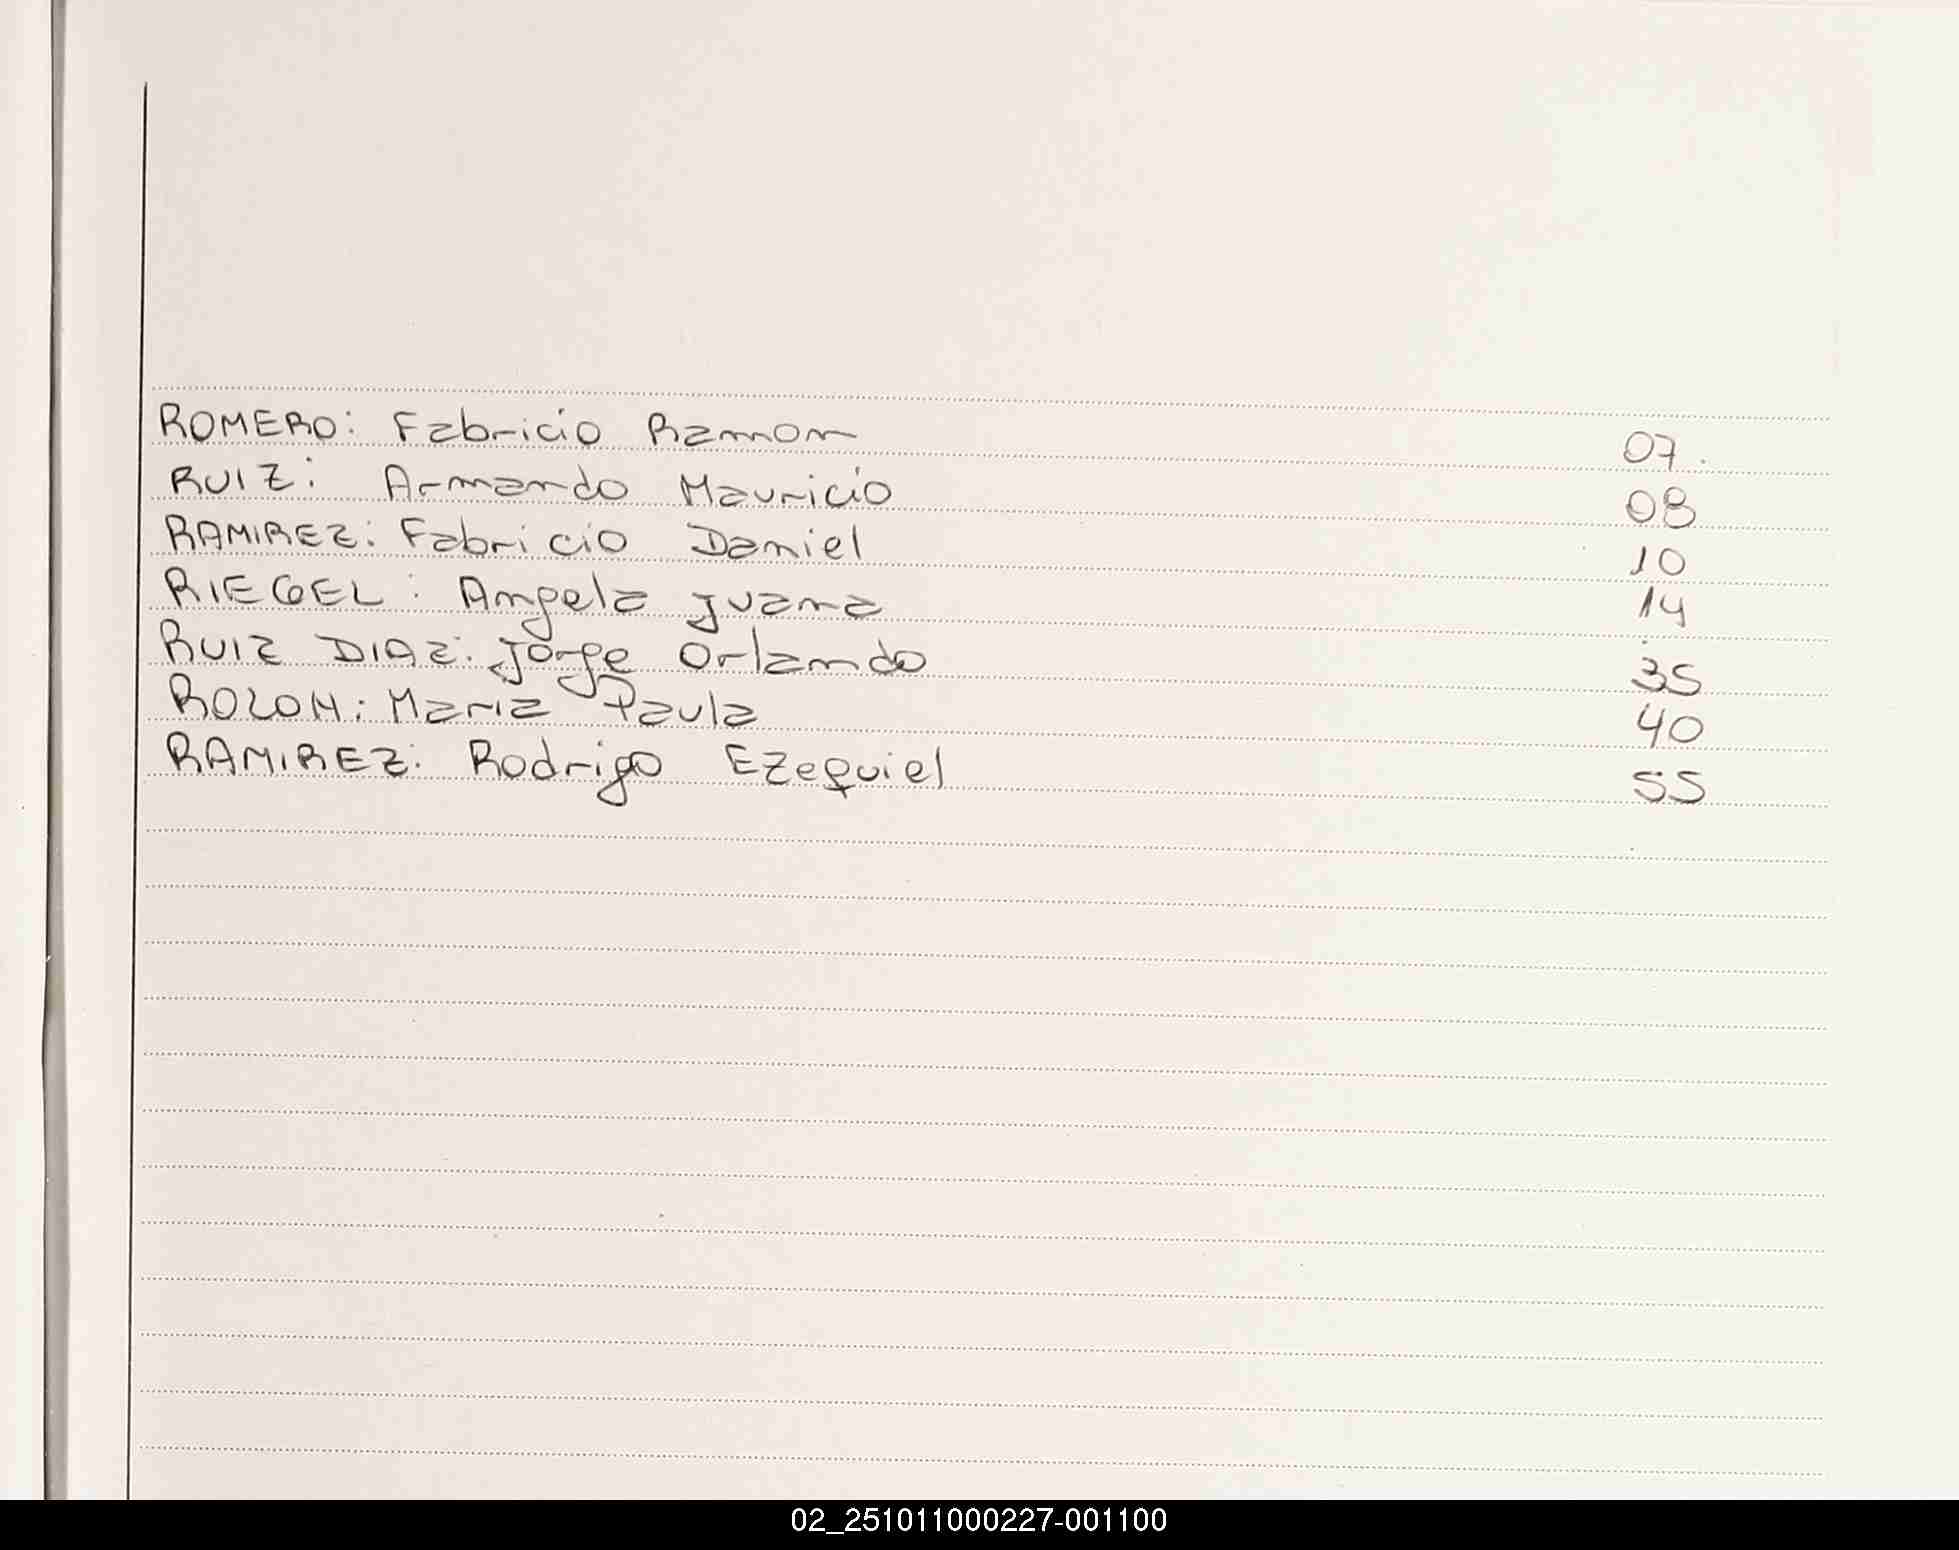 ROMERO: Fabricio Ramon 07.
RUIZ: Armando Mauricio 08
RAMIREZ: Fabricio Daniel 10
RIEGEL: Angela Juana 14
RUIZ DIAZ: Jorge Orlando 35
ROLON: Maria Paula 40
RAMIREZ: Rodrigo Ezequiel 55
02_251011000227-001100